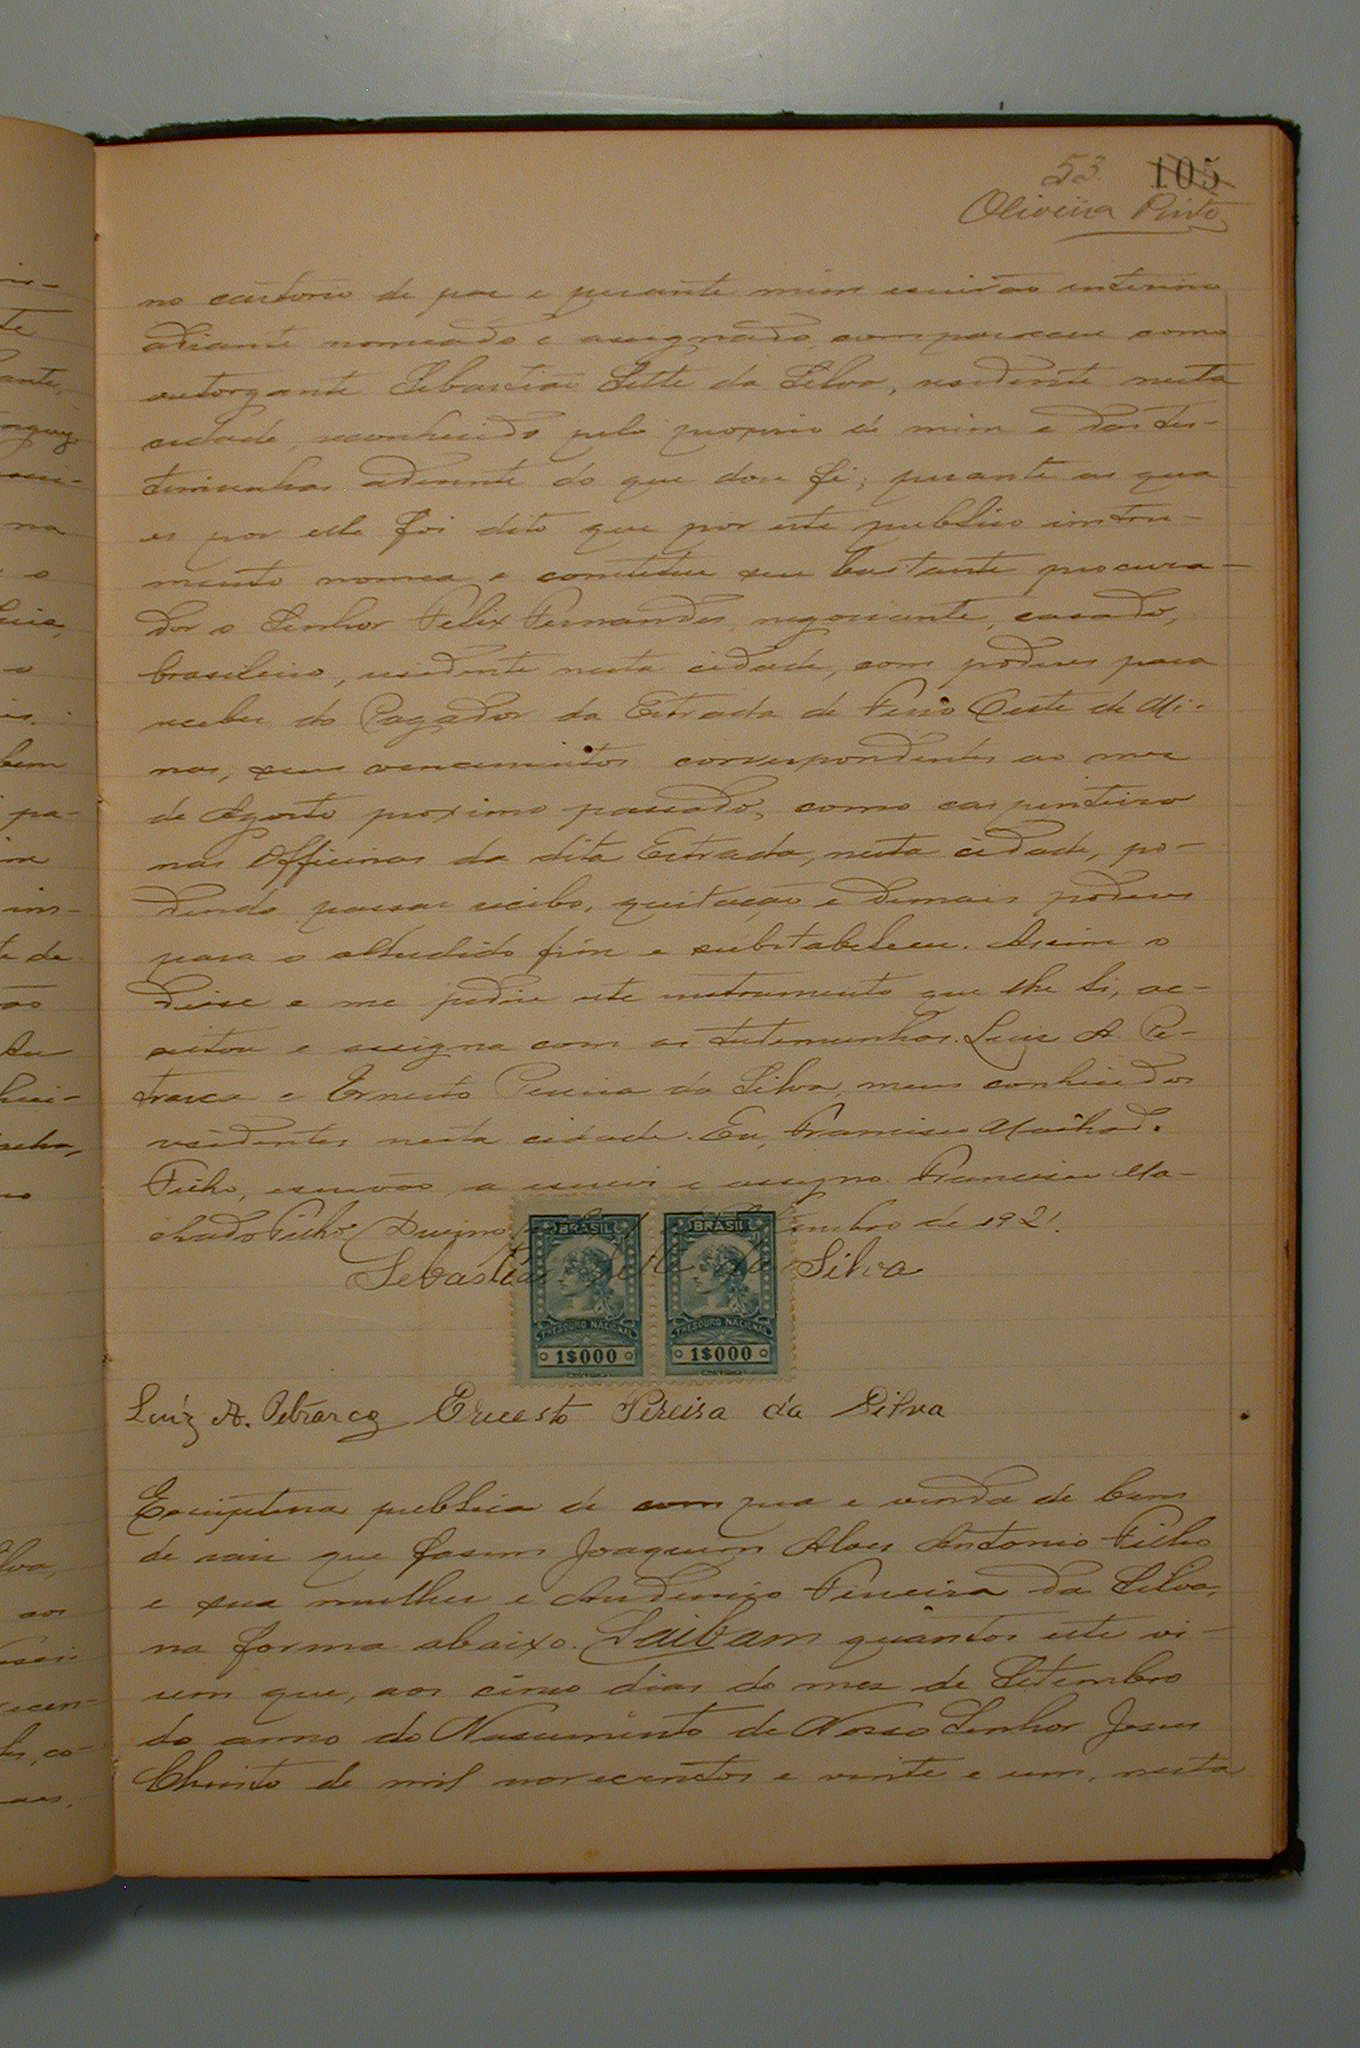 53. 105
Oliveira Pinto
no cartorio de paz e perante mim escrivão interino
adiante nomeado e assignado, compareceu como
outorgante Sebastião Sette da Silva, residente nesta
cidade, reconhecido pelo proprio de mim e das tes-
temunhas adeante do que dou fé; perante as qua
es por elle foi dito que por este publico instru-
mento nomea e constitue seu bastante procura-
dor o Senhor Felix Fernandes, negociante, casado,
brasileiro, residente nesta cidade, com poderes para
receber do Pagador da Estrada de Ferro Oeste de Mi-
nas, seus vencimentos correspondentes ao mez
de Agosto proximo passado, como carpinteiro
nas Officinas da dita Estrada, nesta cidade, po-
dendo passar recibo, quitação e demais poderes
para o alludido fim e substabelecer. Assim o
disse e me pediu este instrumento que lhe li, ac-
ceitou e assigna com as testemunhas Luiz A. Pe-
trarca e Ernesto Pereira da Silva, meus conhecidos
residentes nesta cidade. Eu, Francisco Machado
Filho, escrivão a escrevi e assigno. Francisco Ma-
chado Filho. Setembro de 1921.
Sebastião Sette da Silva
BRASIL BRASIL
THESOURO NACIONAL THESOURO NACIONAL
1$000 1$000
Luiz A. Petrarca Ernesto Pereira da Silva
Escriptura publica de compra e venda de bens
de raiz que fasem Joaquim Alves Antonio Filho
e sua mulher e Ferreira da Silva,
na forma abaixo. Saibam quantos este vi-
rem que, aos cinco dias do mez de Setembro
do anno do Nascimento de Nosso Senhor Jesus
Christo de mil novecentos e vinte e um, nesta